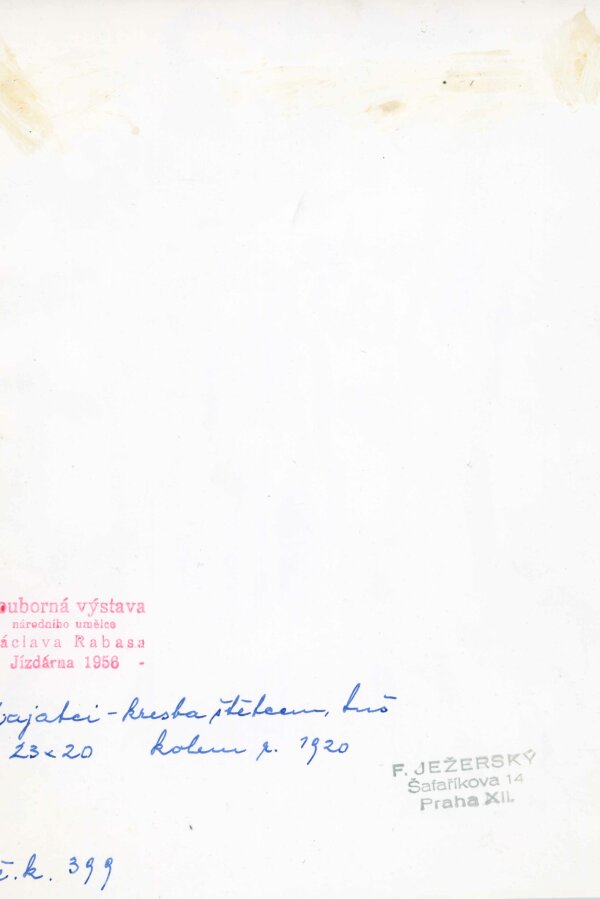 ouborná výstava
národního umělce
áclava Rabasa
Jízdárna 1956 -
kresba štětcem, tuš
23×20 kolem r. 1920
F. JEŽERSKÝ
Šafaříkova 14
Praha XII.
č.k. 399